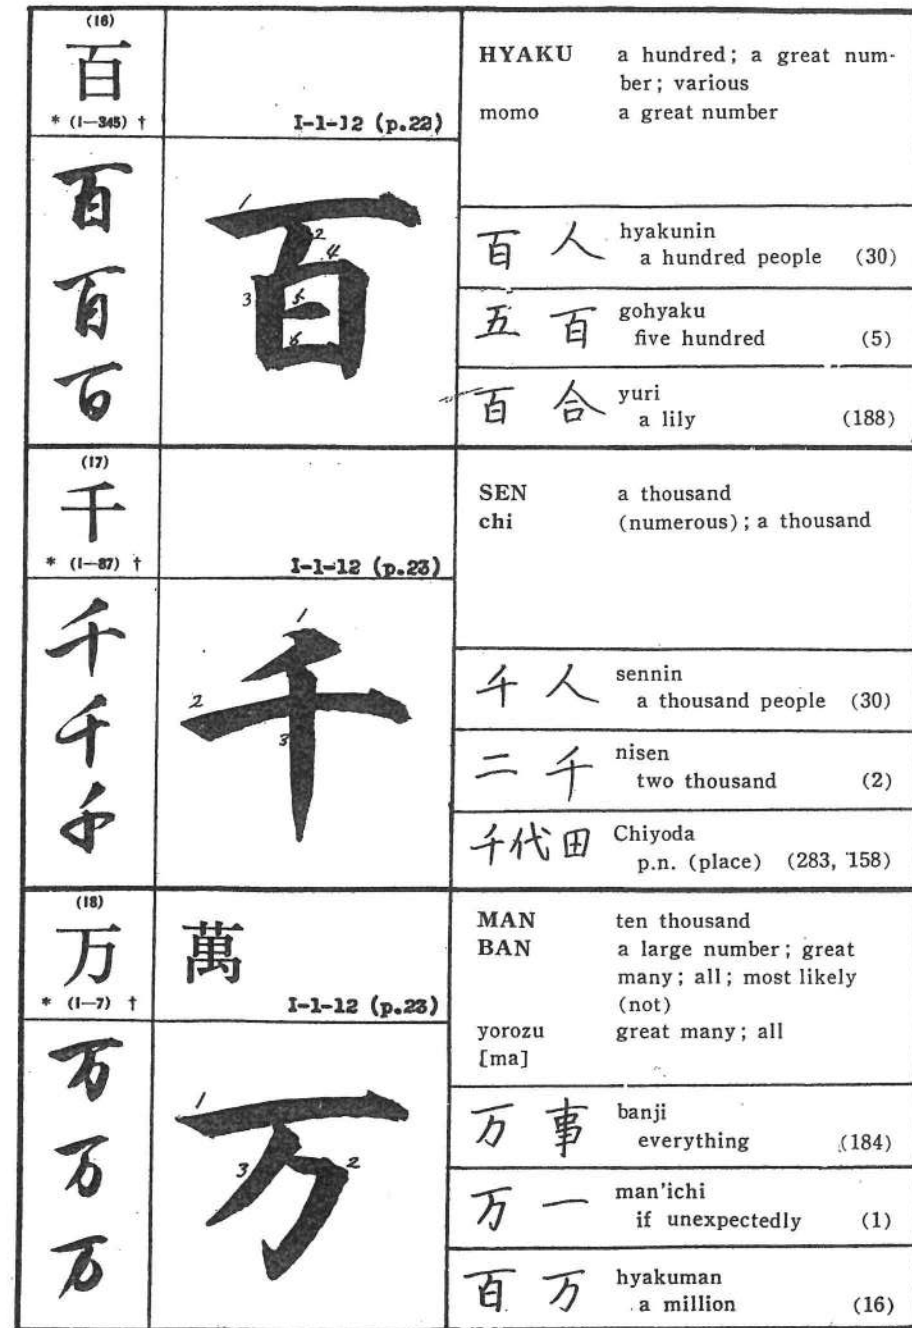 (16)
百
* (I—345) †
I-1-12 (p.22)
HYAKU a hundred; a great num-
ber; various
momo a great number
百
百
百
1
百
2
4
3
5
6
百人 hyakunin
a hundred people (30)
五百 gohyaku
five hundred (5)
百合 yuri
a lily (188)
(17)
千
* (I—87) †
I-1-12 (p.23)
SEN a thousand
chi (numerous); a thousand
千
千
千
1
千
2
3
千人 sennin
a thousand people (30)
二千 nisen
two thousand (2)
千代田 Chiyoda
p.n. (place) (283, 158)
(18)
万
* (I—7) †
萬
I-1-12 (p.23)
MAN ten thousand
BAN a large number; great
many; all; most likely
(not)
yorozu great many; all
[ma]
万
万
万
1
万
3 2
万事 banji
everything (184)
万一 man'ichi
if unexpectedly (1)
百万 hyakuman
a million (16)